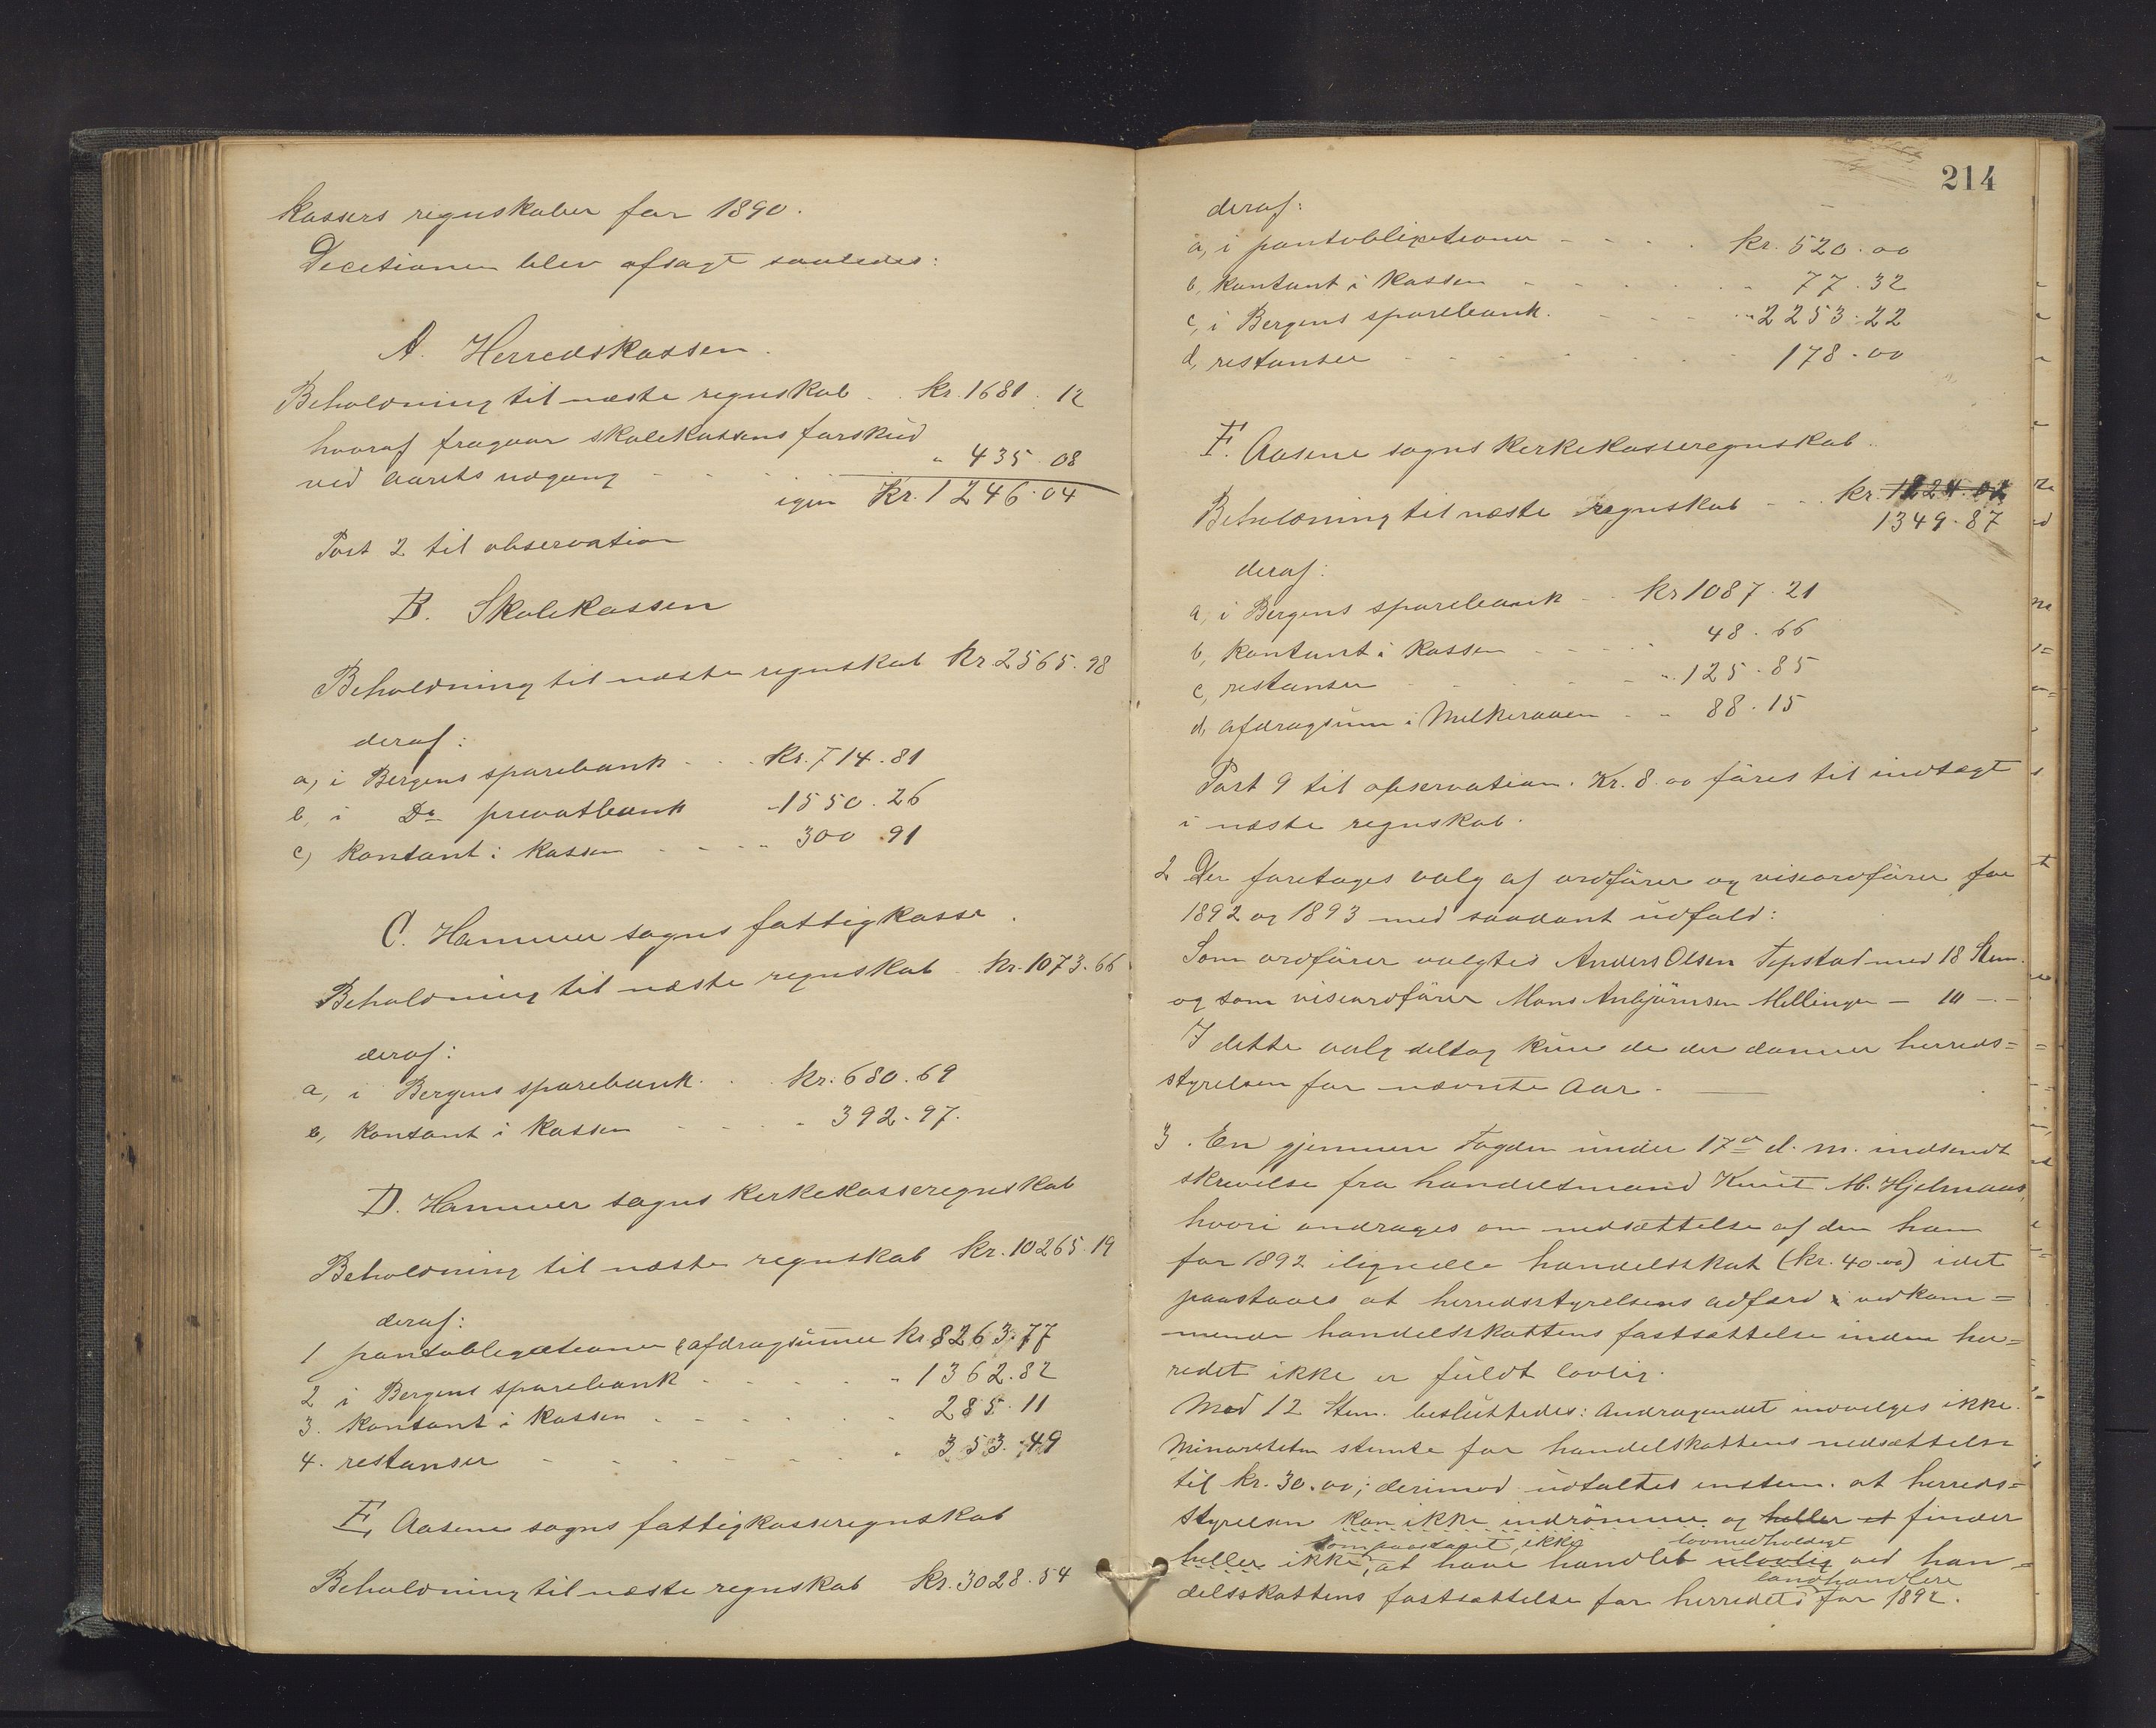 kassers regnskaber for 1890.
Decitionen blev afsagt saaledes:
A. Herredskassen.
Beholdning til næste regnskab . . kr. 1681.12
hvoraf fragaar skolekassens forskud
ved aarets udgang - - - - " 435.08
igjen Kr. 1246.04
Post 2 til observation
B. Skolekassen
Beholdning til næste regnskab kr 2565.98
deraf:
a, i Bergens sparebank - . . kr. 714.81
b, i Do privatbank - 1550.26
c, kontant i kassen - - - - 300.91
C. Hammer sogns fattigkasse.
Beholdning til næste regnskab - kr. 1073.66
deraf:
a, i Bergens sparebank. . . kr. 680.69
b, kontant i kassen - - - - 392.97.
D. Hammer sogns kirkekasseregnskab
Beholdning til næste regnskab kr. 10265.19
deraf:
1 pantobligationer & afdragsumer kr 8263.77
2 i Bergens sparebank - - - - " 1362.82
3. kontant i kassen . - - - - - 285.11
4. restanser - - - - - - 353.49
E, Aasene sogns fattigkasseregnskab
Beholdning til næste regnskab kr. 3028.54
214
deraf:
a, i pantobligationer - - - . kr. 520.00
b, kontant i kassen - - - - - - 77.32
c, i Bergens sparebank. - - - - " 2253.22
d, restanser - - - - - - 178.00
F. Aasene sogns kirkekasseregnskab.
Beholdning til næste regnskab - - . kr. 1224.02
1349.87
deraf:
a, i Bergens sparebank - . kr 1087.21
b, kontant i kassen - - - - 48.66
c, restanser - - - - " 125.85
d, afdragsum i Melkeraaen - - 88.15
Post 9 til observation. Kr. 8.00 føres til indtægt
i næste regnskab.
2. Der foretages valg af ordfører og viseordfører for
1892 og 1893 med saadant udfald:
Som ordfører valgtes Anders Olsen Tepstad med 18 Stem.
og som viseordfører Mons Anbjørnsen Mellingen - 10 - . -
I dette valg deltog kun de der danner herreds=
styrelsen for nævnte Aar. -
3. En gjennem Fogden under 17de d. m. indsendt
skrivelse fra handelsmand Knut M. Hjelmaas,
hvori andrages om nedsættelse af den ham
for 1892 ilignede handelsskat (kr. 40.00) idet
paastaaes at herredsstyrelsens adfærd i vedkom=
mende handelsskattens fastsættelse inden her=
redet ikke er fuldt lovlig.
Med 12 Stem. besluttedes: Andragendet indvilges ikke.
Minoriteten stemte for handelskattens nedsættelse
til kr. 30.00; derimod udtaltes enstem. at herreds=
styrelsen kan ikke indrømme og heller et finder
som paastaaet, ikke lovmedholdigt
heller ikke, at have handlet ulovlig ved han=
landhandlere
delsskattens fastsættelse for herredets for 1892.